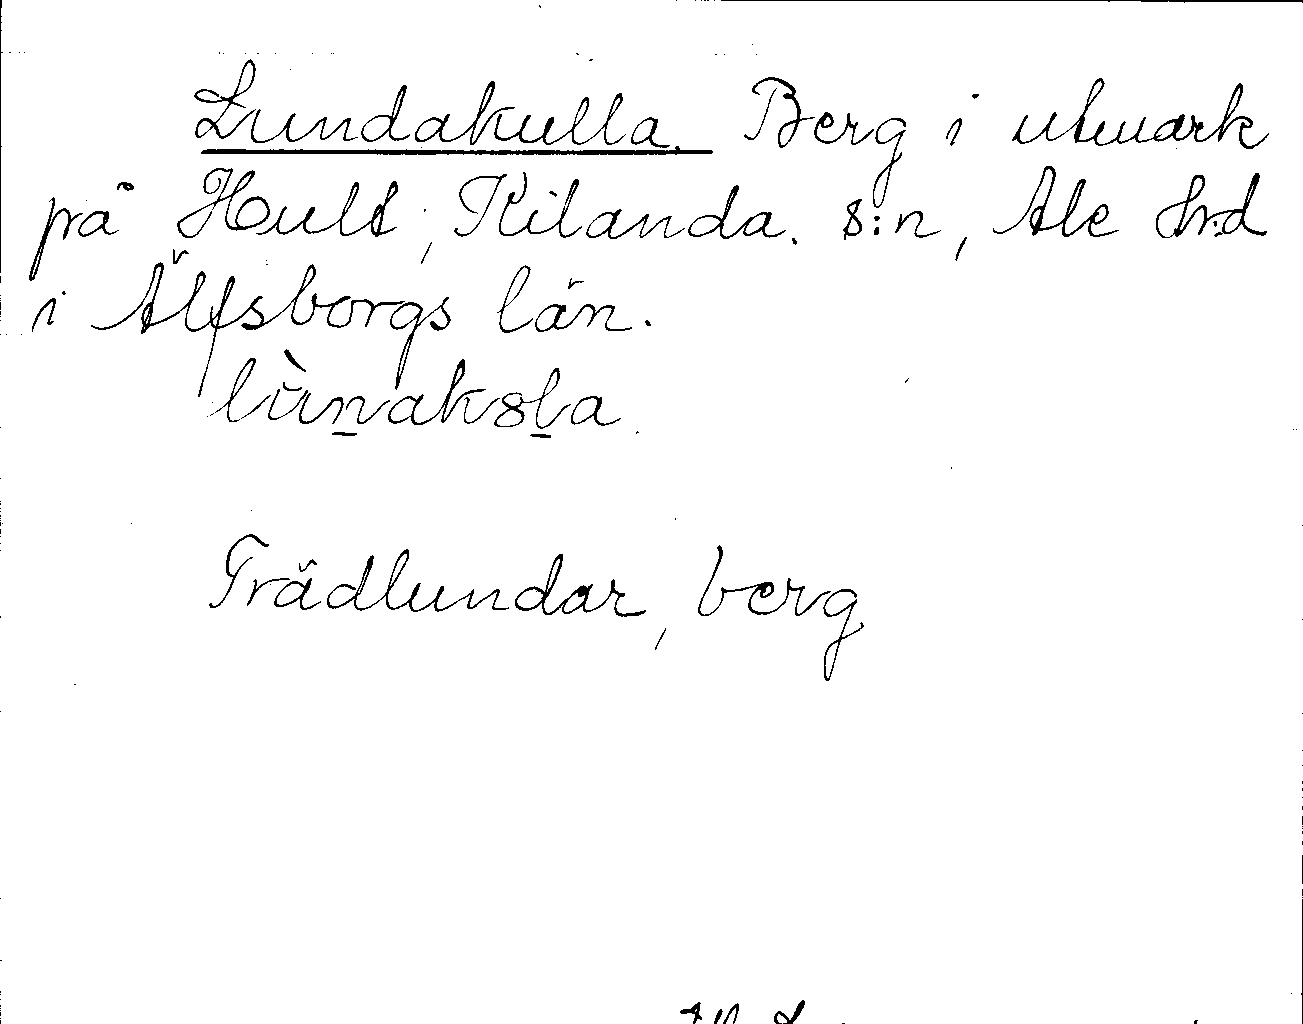 Lundakulla. Berg i utmark
på Hult, Kilanda. s:n, Ale hrd
i Älfsborgs län.
lùn̠aksl̠a
Trädlundar, berg